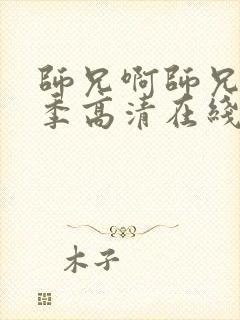 師兄啊師兄
季高清在綫
木子